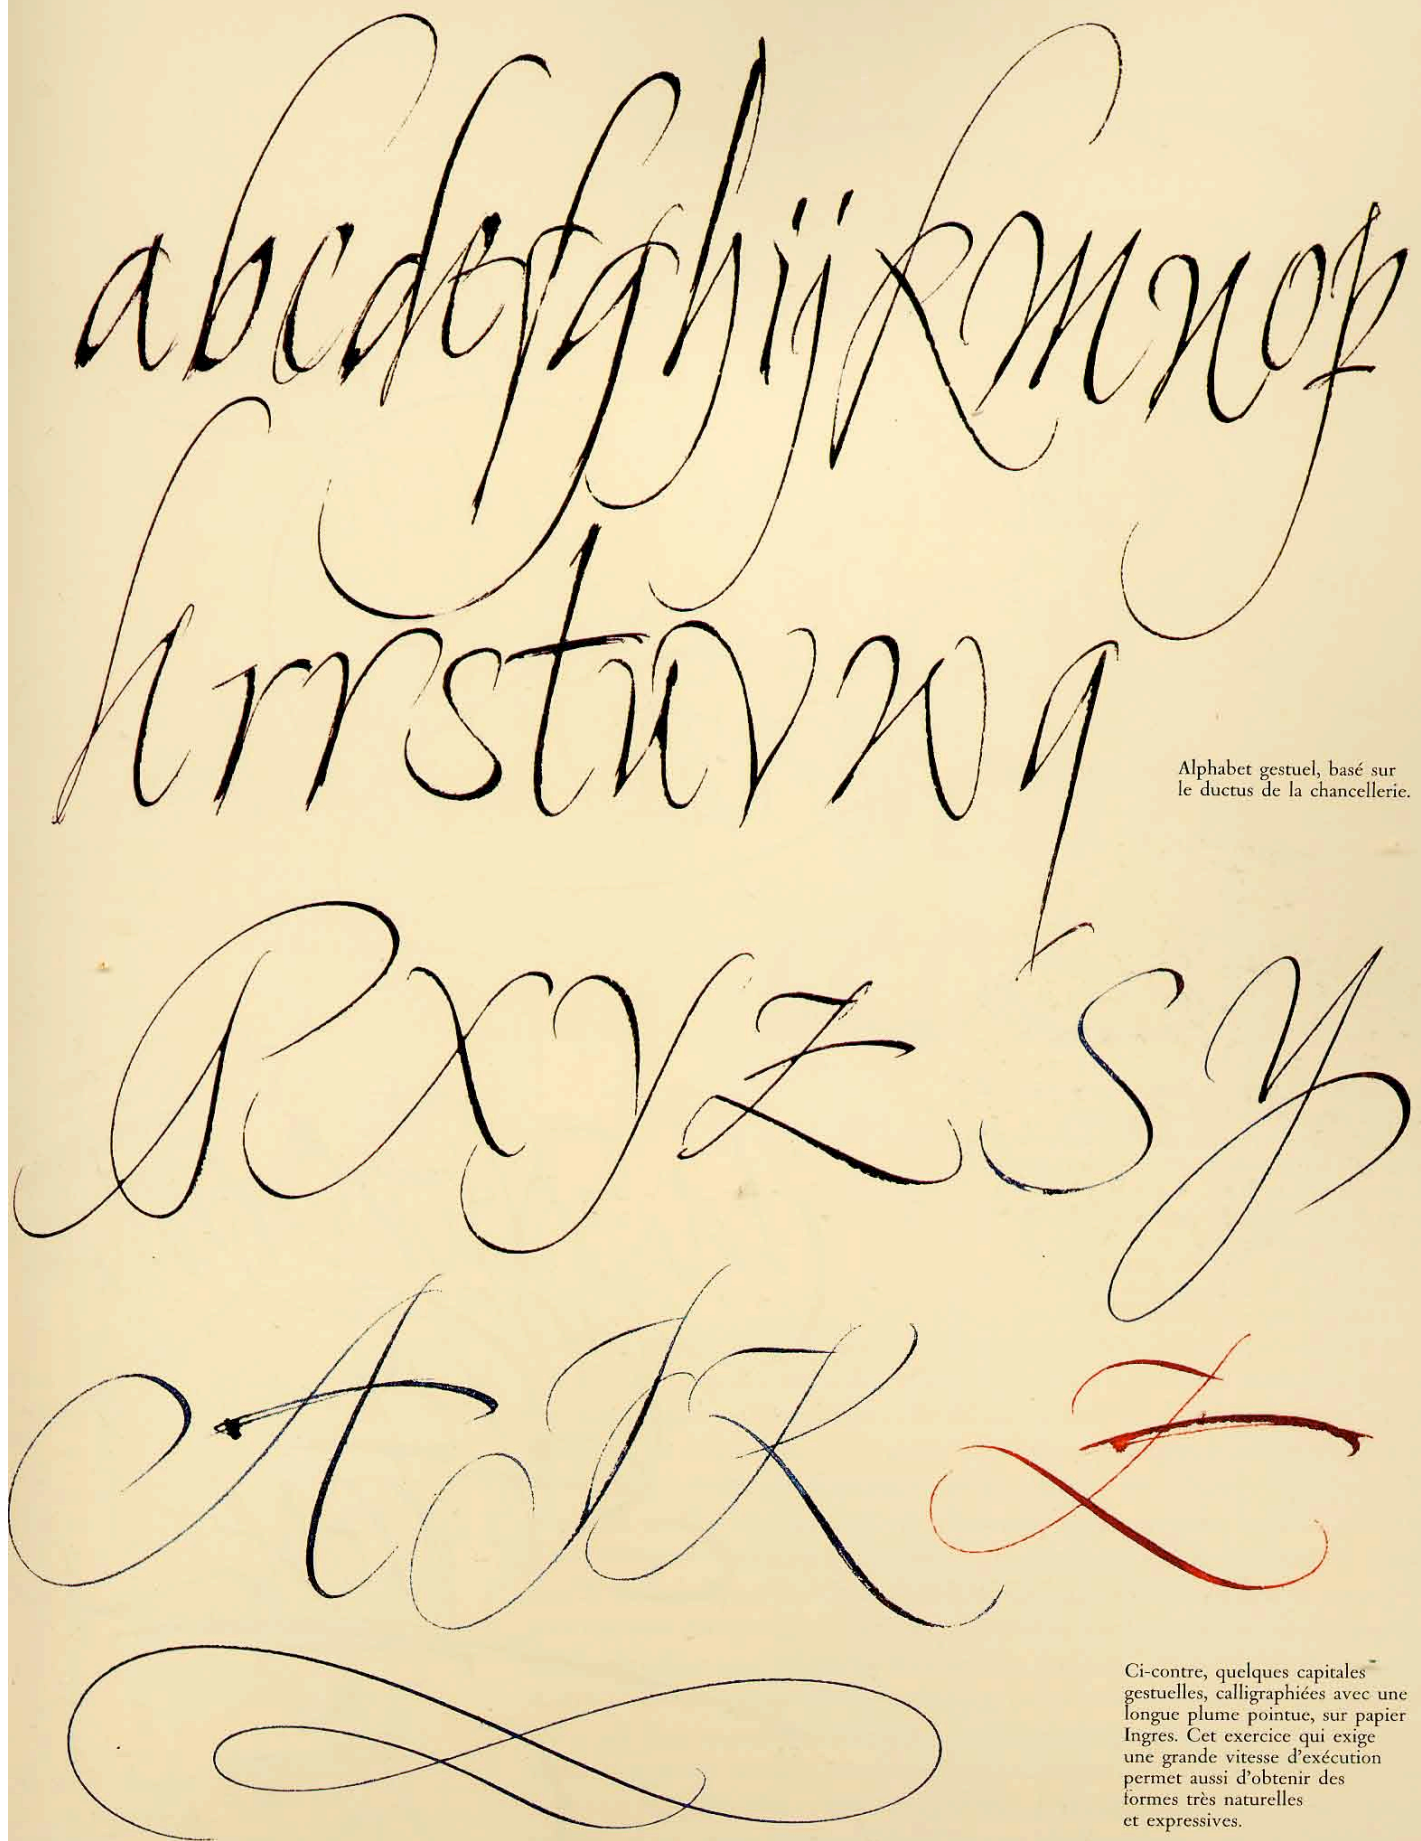 abcdefghijkmnop
hrrstuvwq
Alphabet gestuel, basé sur
le ductus de la chancellerie.
RXYZ SY
A K Z
Ci-contre, quelques capitales
gestuelles, calligraphiées avec une
longue plume pointue, sur papier
Ingres. Cet exercice qui exige
une grande vitesse d'exécution
permet aussi d'obtenir des
formes très naturelles
et expressives.